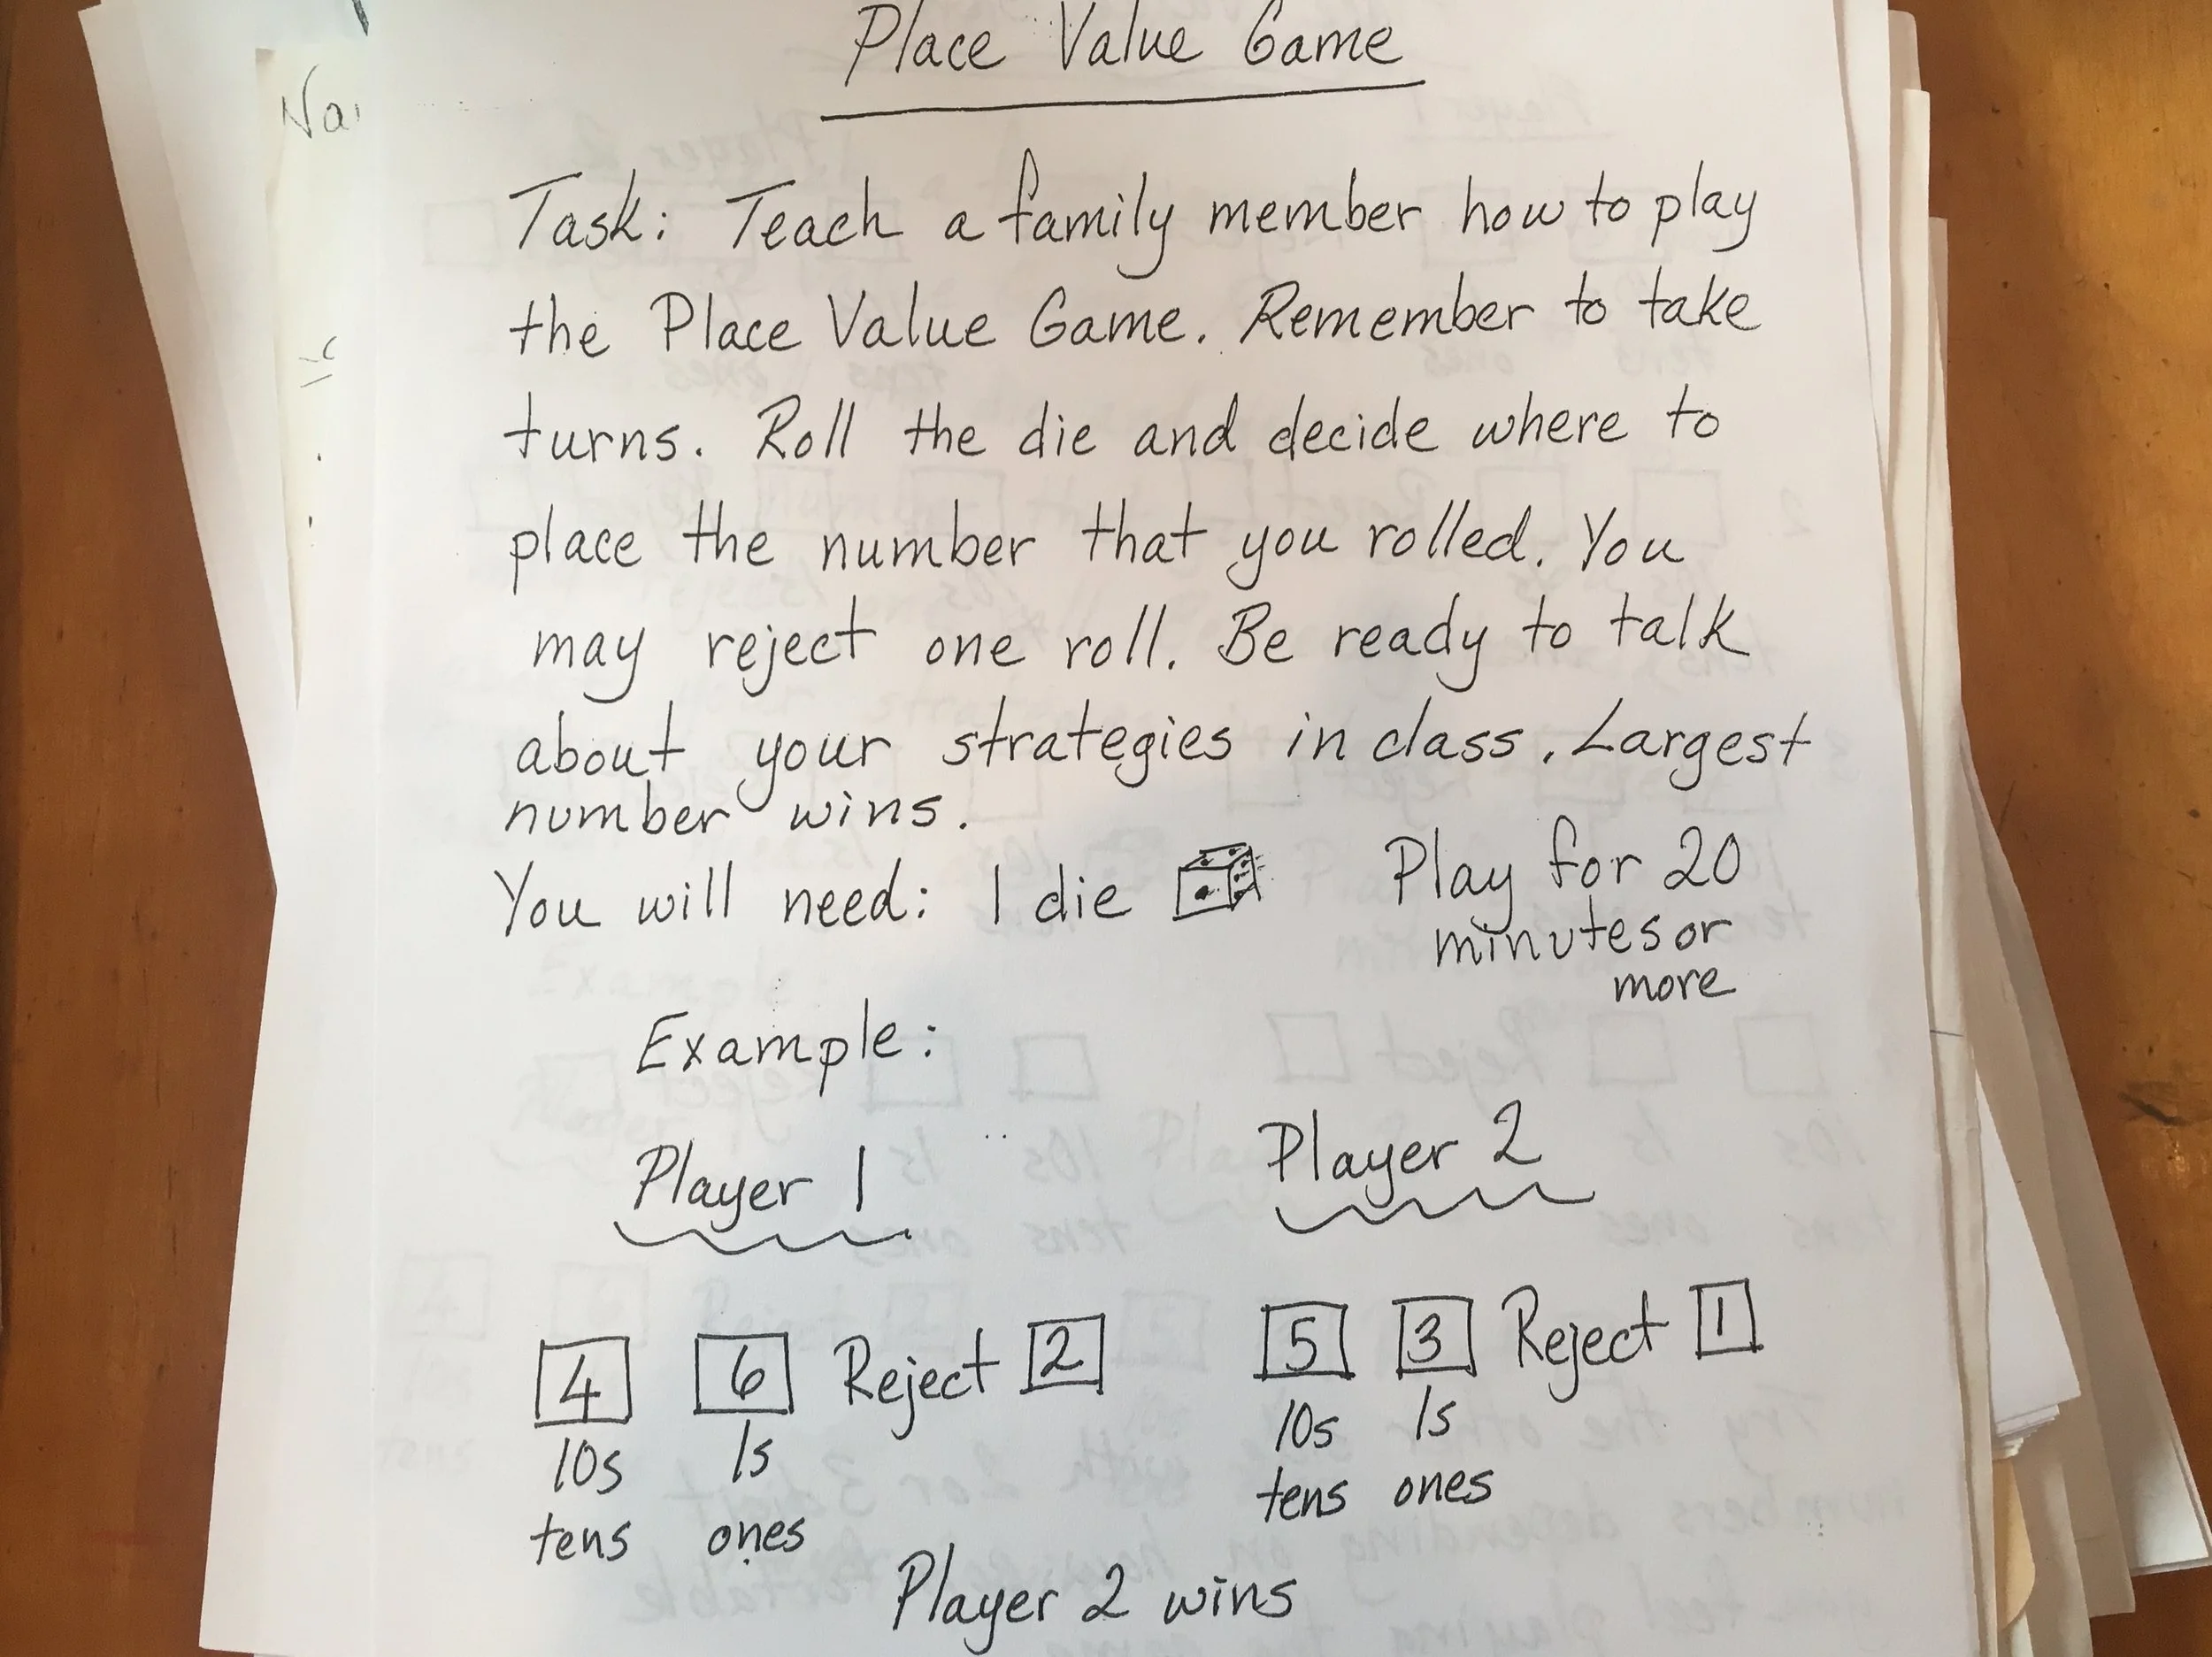 Place Value Game
Task: Teach a family member how to play
the Place Value Game. Remember to take
turns. Roll the die and decide where to
place the number that you rolled. You
may reject one roll. Be ready to talk
about your strategies in class. Largest
number wins.
You will need: 1 die
Play for 20
minutes or
more
Example:
Player 1
Player 2
4 6 Reject 2
10s 1s
tens ones
5 3 Reject 1
10s 1s
tens ones
Player 2 wins